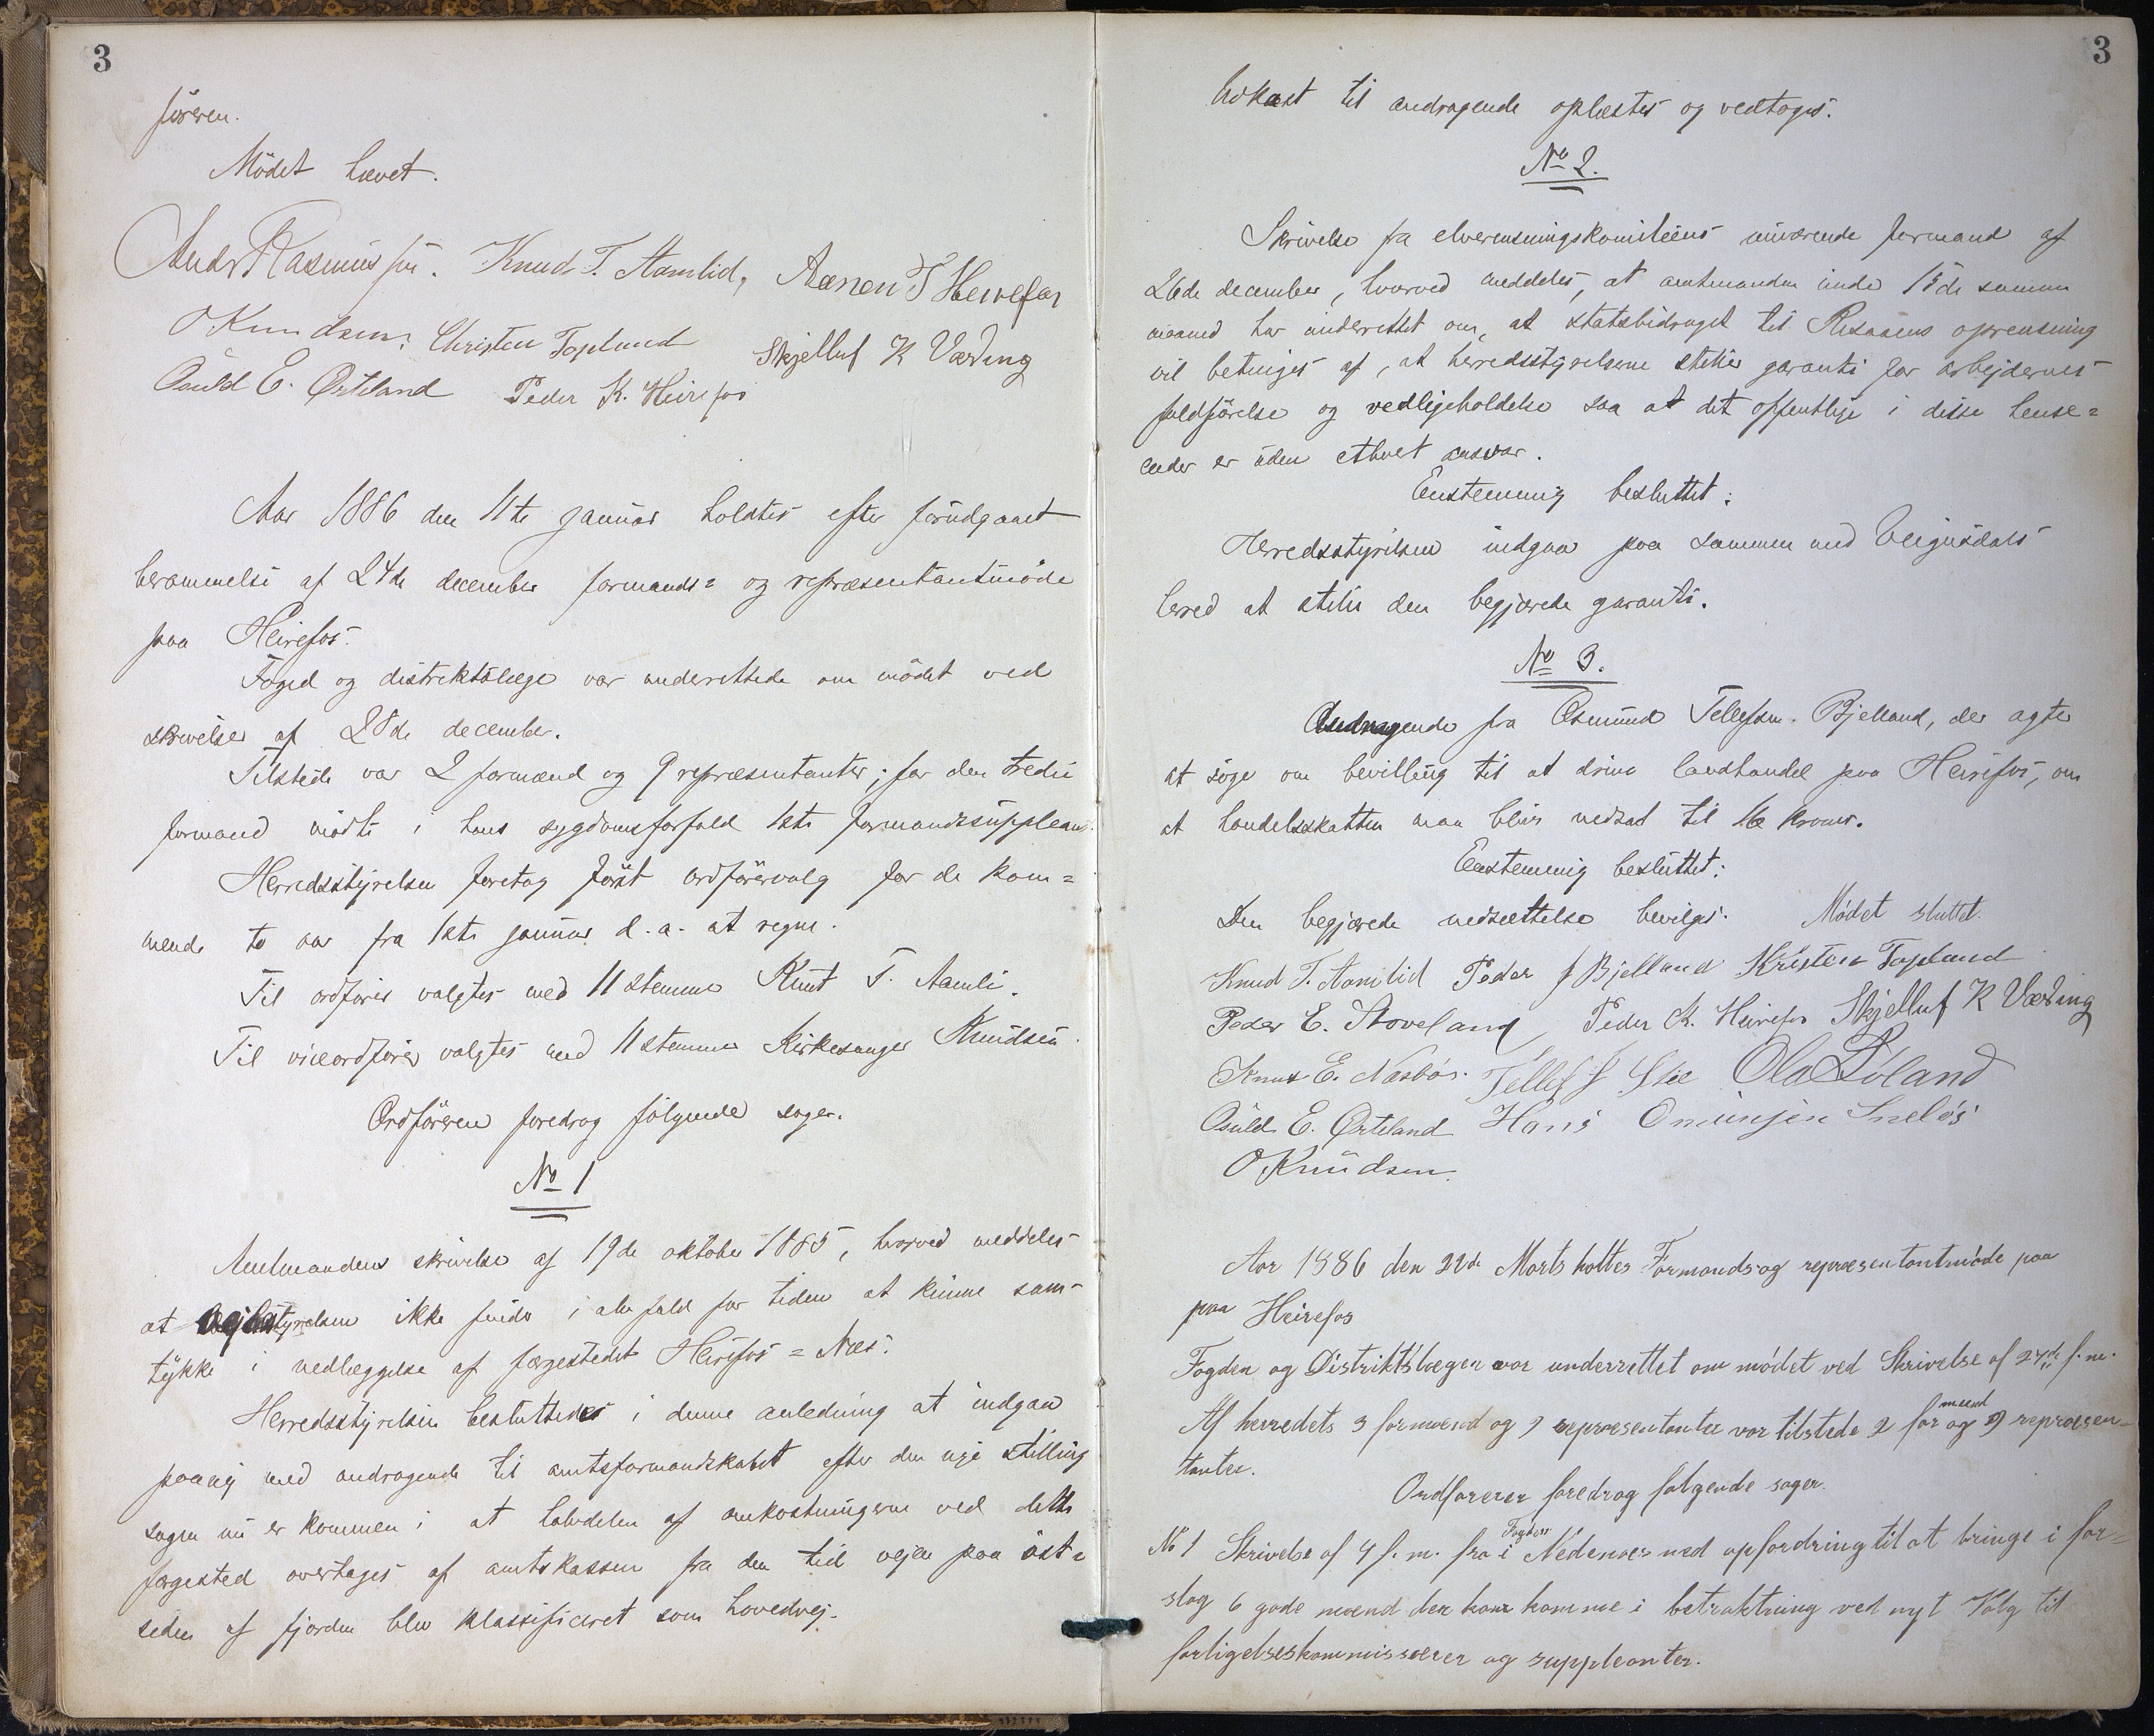 3
føreren.
Mødet hævet.
Knud T. Aamlid, Aanen T Heirefos
O Knudsen. Christen Topland Skjelluf K Væding
Osuld E. Ørteland Peder K. Heirefos
Aar 1886 den 11te januar holdtes efter forudgaaet
berammelse af 24de december formands= og repræsentantmøde
paa Heirefos.
Foged og distriktslæge var underrettede om mødet ved
skrivelse af 28de december.
Tilstede var 2 formænd og 9 repræsentanter; for den tredie
formand mødte i hans sygdomsforfald 1ste formandssuppleant.
Herredsstyrelsen foretog først ordførervalg for de kom=
mende to aar fra 1ste januar d.a. at regne.
Til ordfører valgtes med 11 stemmer Knut T. Aamli.
Til viceordfører valgtes med 11 stemmer Kirkesanger Knudsen.
Ordføreren foredrog følgende sager.
No 1
Amtmandens skrivelse af 19de oktober 1885, hvorved meddeles
at vejbestyrelsen ikke finder i alle fald for tiden at kunne sam-
tykke i nedlæggelse af færgestedet Heirefos = Næs.
Herredsstyrelsen besluttedes i denne anledning at indgaa
paany med andragende til amtsformandskabet efter den nye stilling
sagen nu er kommen i at halvdelen af omkostningerne ved dette
færgested overtages af amtskassen fra den tid vejen paa øst=
siden af fjorden blev klassificeret som hovedvej.
3
Udkast til andragende oplæstes og vedtoges.
No 2.
Skrivelse fra elverensningskomiteens nuværende formand af
26de december, hvorved meddeles, at amtmanden under 15de samme
maaned har underrettet om, at statsbidraget til Risaaens oprensning
vil betinges af, at herredsstyrelserne stiller garanti for arbejdernes
fuldførelse og vedligeholdelse saa at det offentlige i disse hense=
ender er uden ethvert ansvar.
Enstemmig besluttet:
Herredsstyrelsen indgaar paa sammen med Vegusdals
herred at stille den begjærede garanti.
No 3.
Andragende fra Osmund Tellefsen Bjelland, der agter
at søge om bevilling til at drive landhandel paa Heirefos, om
at handelsskatten maa blive nedsat til 16 kroner.
Enstemmig besluttet:
Den begjærede nedsættelse bevilges. Mødet sluttet.
Knud T. Aamlid Peder J Bjelland Kristen Topland
Peder E. Stoveland Peder K. Heirefos Skjelluf K Væding
Knut E. Næsbøs. Tellef J Ola
Osuld E. Ørteland Hans Omunsen
O Knudsen.
Aar 1886 den 22de Marts holtes Formands og repræsentantmøde paa
paa Heirefos
Fogden og Distriktslægen var underrettet om mødet ved Skrivelse af 27de f.m.
Af herredets 3 formænd og 9 repræsentanter var tilstede 2 formænd og 9 repræsen-
tanter.
Ordføreren foredrog følgende sager.
No 1 Skrivelse af 4 f.m. fra Fogden i Nedenæs med opfordring til at bringe i for=
slag 6 gode mænd der kan komme i betraktning ved nyt Valg til
forligelseskommissærer og suppleanter.